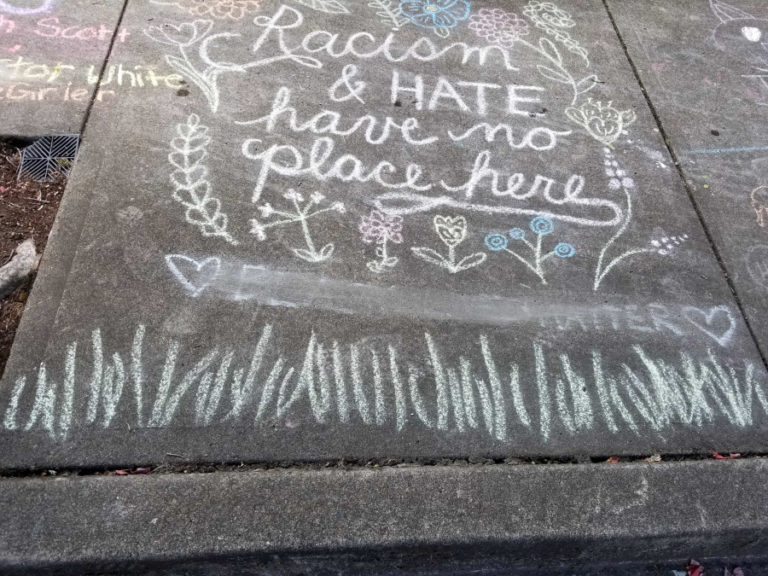 Scott
tor White
eGirler
Racism
& HATE
have no
place here
MATTER